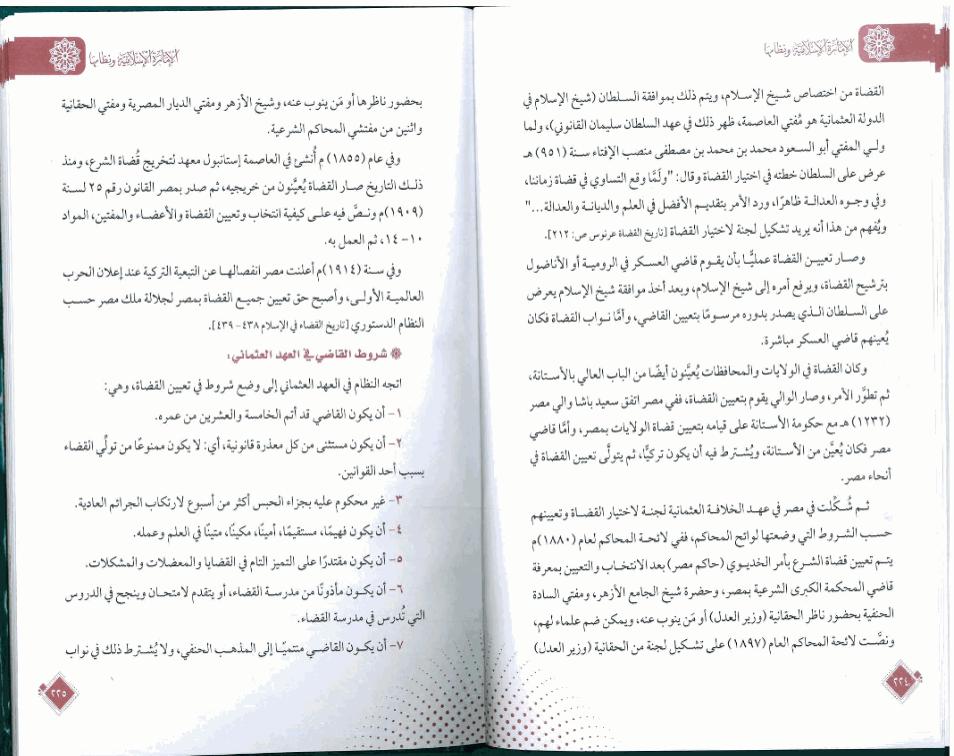 الإمارة الإسلامية ونظامها
القضاة من اختصاص شـيخ الإسـلام، ويتم ذلك بموافقة السـلطان (شيخ الإسلام في
الدولة العثمانية هو مُفتي العاصمة، ظهر ذلك في عهد السلطان سليمان القانوني)، ولما
ولـي المفتي أبو السعود محمد بن محمد بن مصطفى منصب الإفتاء سنة (٩٥١) هـ
عرض على السلطان خطته في اختيار القضاة وقال: "ولَمَّا وقع التساوي في قضاة زماننا،
وفي وجوه العدالـة ظاهرًا، ورد الأمر بتقديـم الأفضل في العلم والديانة والعدالة..."
ويُفهم من هذا أنه يريد تشكيل لجنة لاختيار القضاة [تاريخ القضاة عرنوس ص: ٢١٢].
وصـار تعييـن القضاة عمليًّـا بأن يقـوم قاضي العسـكر في الروميـة أو الأناضول
بترشيح القضاة، ويرفع أمره إلى شيخ الإسلام، وبعد أخذ موافقة شيخ الإسلام يعرض
على السـلطان الـذي يصدر بدوره مرسـومًا بتعيين القاضي، وأمَّا نـواب القضاة فكان
يُعينهم قاضي العسكر مباشرة.
وكان القضاة في الولايات والمحافظات يُعيَّنون أيضًا من الباب العالي بالآستانة،
ثم تطوَّر الأمر، وصار الوالي يقوم بتعيين القضاة، ففي مصر اتفق سعيد باشا والي مصر
(١٢٣٢) هـ مع حكومة الآستانة على قيامه بتعيين قضاة الولايات بمصر، وأمَّا قاضي
مصر فكان يُعيَّن من الآستانة، ويُشـترط فيه أن يكون تركيًّا، ثم يتولَّى تعيين القضاة في
أنحاء مصر.
ثـم شُـكِّلت في مصر في عهـد الخلافة العثمانية لجنة لاختيار القضـاة وتعيينهم
حسـب الشـروط التي وضعتها لوائح المحاكم، ففي لائحة المحاكم لعام (١٨٨٠)م
يتـم تعيين قضاة الشـرع بأمر الخديـوي (حاكم مصر) بعد الانتخـاب والتعيين بمعرفة
قاضي المحكمة الكبرى الشرعية بمصر، وحضرة شيخ الجامع الأزهر، ومفتي السادة
الحنفية بحضور ناظر الحقانية (وزير العدل) أو مَن ينوب عنه، ويمكن ضم علماء لهم،
ونصَّـت لائحة المحاكم العام (١٨٩٧) على تشـكيل لجنة من الحقانية (وزير العدل)
٢٢٤
الإمارة الإسلامية ونظامها
بحضور ناظرها أو مَن ينوب عنه، وشيخ الأزهر ومفتي الديار المصرية ومفتي الحقانية
واثنين من مفتشي المحاكم الشرعية.
وفي عام (١٨٥٥) م أُنشئ في العاصمة إستانبول معهد لتخريج قُضاة الشرع، ومنذ
ذلـك التاريخ صـار القضاة يُعيَّنون من خريجيه، ثم صدر بمصر القانون رقم ٢٥ لسـنة
(١٩٠٩)م ونـصَّ فيه علـى كيفية انتخاب وتعيين القضاة والأعضـاء والمفتين، المواد
١٠- ١٤، ثم العمل به.
وفي سـنة (١٩١٤)م أعلنت مصر انفصالهـا عن التبعية التركية عند إعلان الحرب
العالميـة الأولـى، وأصبح حق تعيين جميـع القضاة بمصر لجلالة ملك مصر حسـب
النظام الدستوري [تاريخ القضاء في الإسلام ٤٣٨- ٤٣٩].
شروط القاضي في العهد العثماني:
اتجه النظام في العهد العثماني إلى وضع شروط في تعيين القضاة، وهي:
١- أن يكون القاضي قد أتم الخامسة والعشرين من عمره.
٢- أن يكون مستثنى من كل معذرة قانونية، أي: لا يكون ممنوعًا من تولِّي القضاء
بسبب أحد القوانين.
٣- غير محكوم عليه بجزاء الحبس أكثر من أسبوع لارتكاب الجرائم العادية.
٤- أن يكون فهيمًا، مستقيمًا، أمينًا، مكينًا، متينًا في العلم وعمله.
٥- أن يكون مقتدرًا على التميز التام في القضايا والمعضلات والمشكلات.
٦- أن يكـون مأذونًا من مدرسـة القضاء، أو يتقدم لامتحـان وينجح في الدروس
التي تُدرس في مدرسة القضاء.
٧- أن يكون القاضـي منتميًـا إلى المذهب الحنفي، ولا يُشـترط ذلك في نواب
٢٢٥